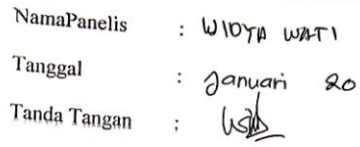 NamaPanelis : WIDYA WATI
Tanggal : Januari 20
Tanda Tangan :